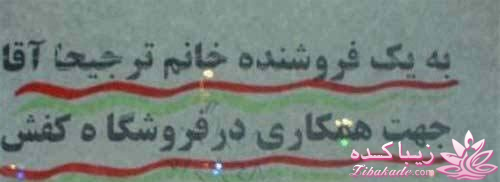 به یک فروشنده خانم ترجیحا آقا
جهت همکاری درفروشگا ه کفش
زیباکده
Zibakade.com